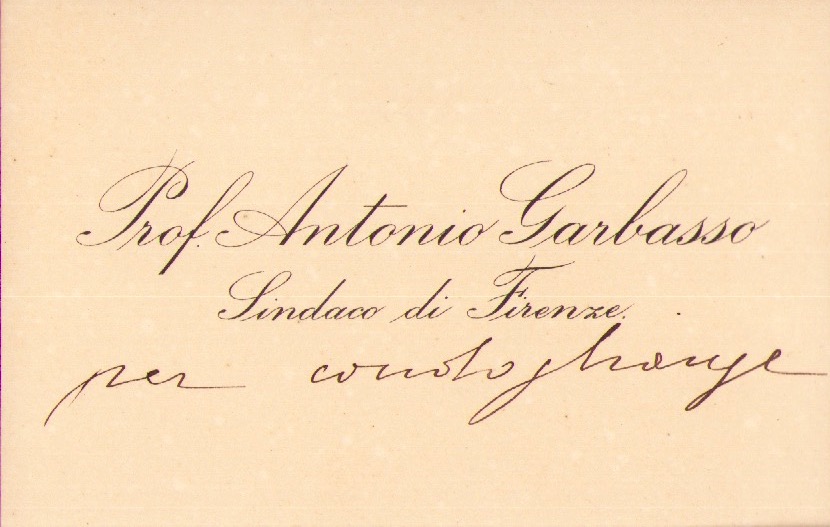 Prof. Antonio Garbasso
Sindaco di Firenze.
per condoglianze